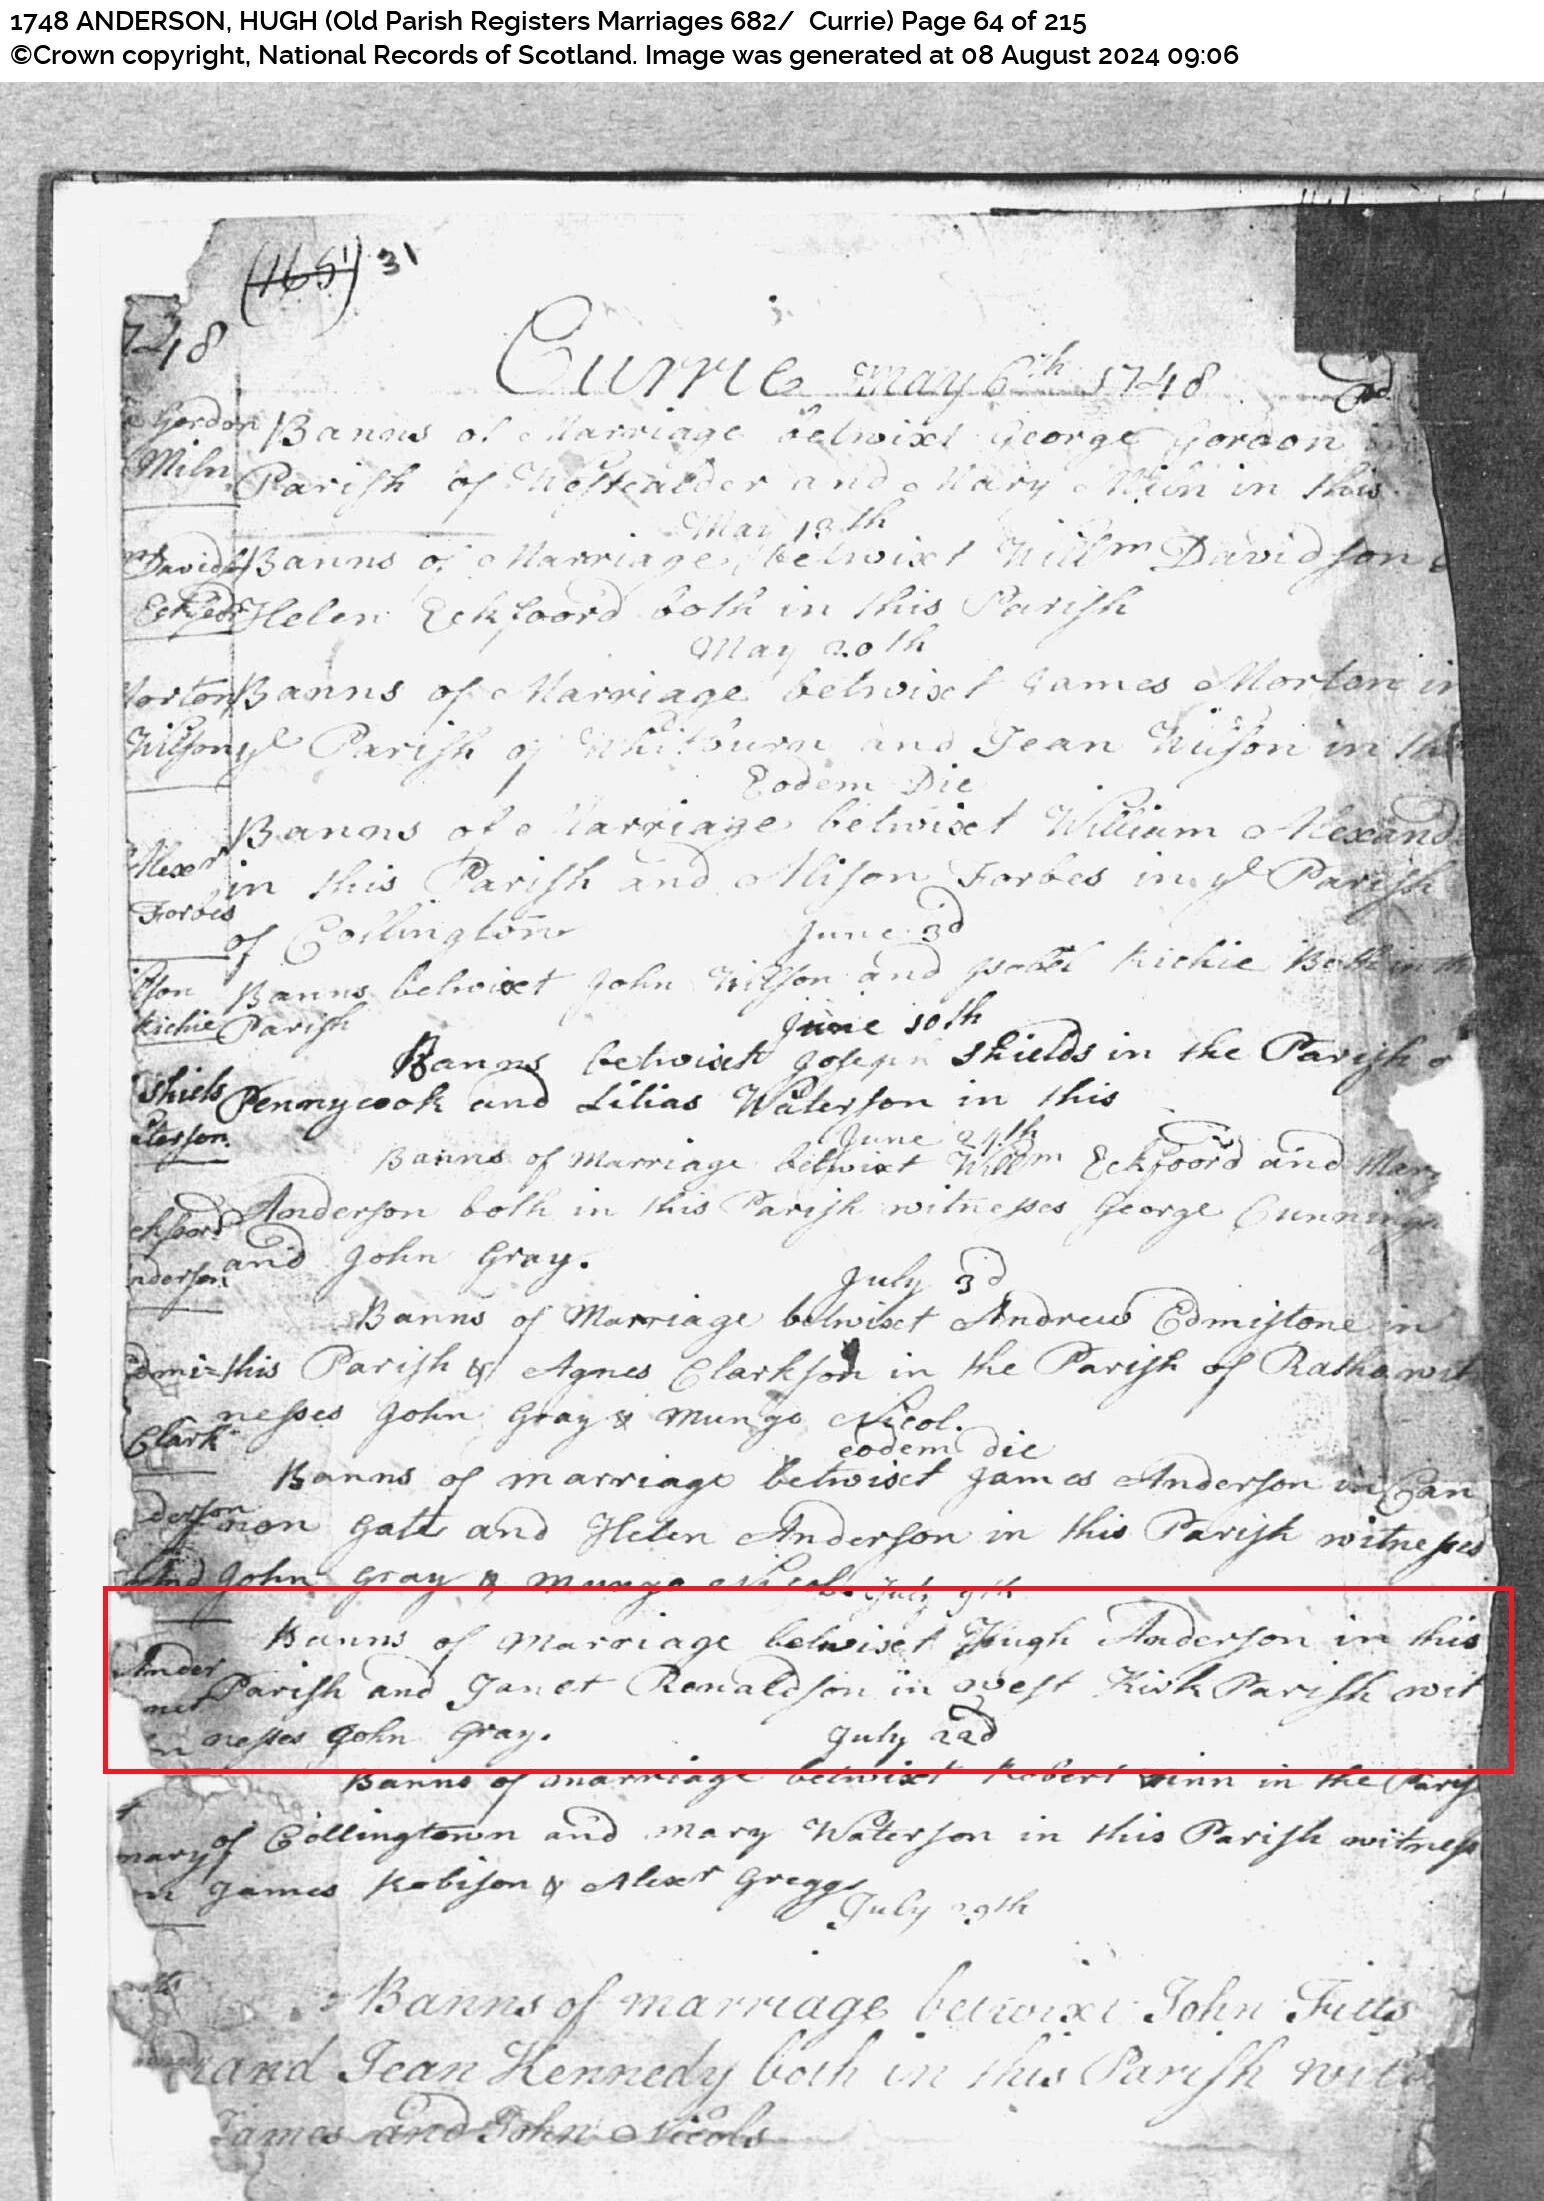 1748 ANDERSON, HUGH (Old Parish Registers Marriages 682/ Currie) Page 64 of 215
©Crown copyright, National Records of Scotland. Image was generated at 08 August 2024 09:06
(165) 31
1748
Currie May 6th 1748
Gordon Banns of Marriage betwixt George Gordon in
Miln Parish of Westcalder and Mary Miln in this
May 13th
Davids Banns of Marriage betwixt Willm Davidson
Helen Eckfoord both in this Parish
May 20th
Morton Banns of Marriage betwixt James Morton in
Willson ye Parish of Whitburn and Jean Wilson in this
Eodem Die
Banns of Marriage betwixt William Alexand
Alexr in this Parish and Alison Forbes in ye Parish
Forbes of Collingtown June 3d
lson Banns betwixt John Wilson and Isobel Richie Both in th
Richie Parish June 10th
Banns betwixt Joseph Shields in the Parish o
Shiels Pennycook and Lilias Waterson in this
aterson June 24th
Banns of Marriage betwixt Willm Eckfoord and Mary
Anderson both in this Parish witnesses George Cunningh
eckfoord and John Gray.
nderson July 3d
Banns of Marriage betwixt Andrew Edmistone in
Edmi= this Parish & Agnes Clarkson in the Parish of Ratho wit
nesses John Gray & Mungo Nicol.
Clark eodem die
Banns of marriage betwixt James Anderson in Can
derson non gate and Helen Anderson in this Parish witnesses
And John Gray & Mungo Nicol. July 9th
Banns of Marriage betwixt Hugh Anderson in this
Ander Parish and Janet Renaldson in west Kirk Parish wit
net nesses John Gray. July 22d
Banns of marriage betwixt Robert in the Parish
of Collingtown and Mary Waterson in this Parish witness
mary James Robison & Alexr Greggs
July 29th
Banns of marriage betwixt John
and Jean Kennedy both in this Parish witn
James and John Nicols